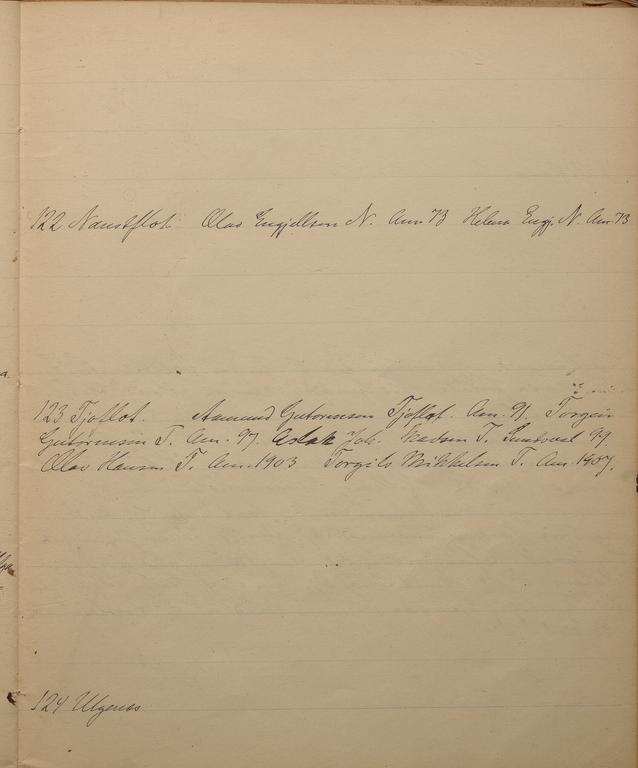 122 Naustflot. Olav Engjellson N. Am 73 Helena Engj. N. Am 73
123 Tjoflot. Aamund Gutormson Tjoflot. Am. 91. Torgeir
Gutormson T. Am. 97. Aslak Joh. T. Sundsval 99
Olav Hanson T. Am. 1903 Torgils Mikkelson T. Am 1907.
124 Ulgenes